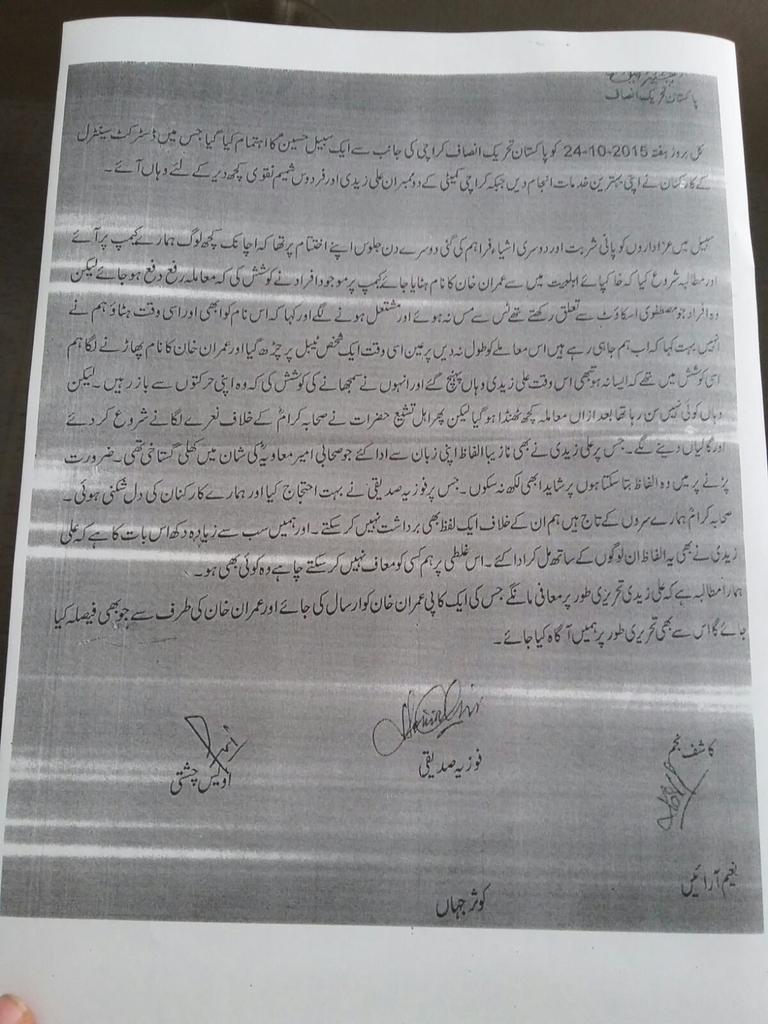 پاکستان تحریک انصاف
کل بروز ہفتہ 24-10-2015 کو پاکستان تحریک انصاف کراچی کی جانب سے ایک سبیل حسین کا اہتمام کیا گیا جس میں ڈسٹرکٹ سینٹرل
کے کارکنان نے اپنی بہترین خدمات انجام دیں جبکہ کراچی کمیٹی کے دو ممبران علی زیدی اور فردوس شمیم نقوی کچھ دیر کے لئے وہاں آئے۔
سبیل میں عزاداروں کو پانی شربت اور دوسری اشیاء فراہم کی گئی دوسرے دن جلوس اپنے اختتام پر تھا کہ اچانک کچھ لوگ ہمارے کیمپ پر آئے
اور مطالبہ شروع کیا کہ خاکپائے اہلبیت میں سے عمران خان کا نام ہٹایا جائے کیمپ پر موجود افراد نے کوشش کی کہ معاملہ رفع دفع ہو جائے لیکن
وہ افراد جو مصطفوی اسکاؤٹ سے تعلق رکھتے تھے ٹس سے مس نہ ہوئے اور مشتعل ہونے لگے اور کہا کہ اس نام کو ابھی اور اسی وقت ہٹاؤ ہم نے
انہیں بہت کہا کہ اب ہم جا ہی رہے ہیں اس معاملے کو طول نہ دیں پر عین اسی وقت ایک شخص ٹیبل پر چڑھ گیا اور عمران خان کا نام پھاڑنے لگا ہم
اسی کوشش میں تھے کہ ایسا نہ ہو تبھی اس وقت علی زیدی وہاں پہنچ گئے اور انہوں نے سمجھانے کی کوشش کی کہ وہ اپنی حرکتوں سے باز رہیں۔ لیکن
وہاں کوئی نہیں سن رہا تھا بعد ازاں معاملہ کچھ ٹھنڈا ہو گیا لیکن پھر اہل تشیع حضرات نے صحابہ کرامؓ کے خلاف نعرے لگانے شروع کر دئے
اور گالیاں دینے لگے۔ جس پر علی زیدی نے بھی نازیبا الفاظ اپنی زبان سے ادا کئے جو صحابی امیر معاویہؓ کی شان میں کھلی گستاخی تھی۔ ضرورت
پڑنے پر میں وہ الفاظ بتا سکتا ہوں پر شاید ابھی لکھ نہ سکوں۔ جس پر فوزیہ صدیقی نے بہت احتجاج کیا اور ہمارے کارکنان کی دل شکنی ہوئی۔
صحابہ کرامؓ ہمارے سروں کے تاج ہیں ہم ان کے خلاف ایک لفظ بھی برداشت نہیں کر سکتے۔ اور ہمیں سب سے زیادہ دکھ اس بات کا ہے کہ علی
زیدی نے بھی یہ الفاظ ان لوگوں کے ساتھ مل کر ادا کئے۔ اس غلطی پر ہم کسی کو معاف نہیں کر سکتے چاہے وہ کوئی بھی ہو۔
ہمارا مطالبہ ہے کہ علی زیدی تحریری طور پر معافی مانگے جس کی ایک کاپی عمران خان کو ارسال کی جائے اور عمران خان کی طرف سے جو بھی فیصلہ کیا
جائے گا اس سے بھی تحریری طور پر ہمیں آگاہ کیا جائے۔
کاشف نجم
فوزیہ صدیقی
اویس چشتی
نعیم آرائیں
کوثر جہاں